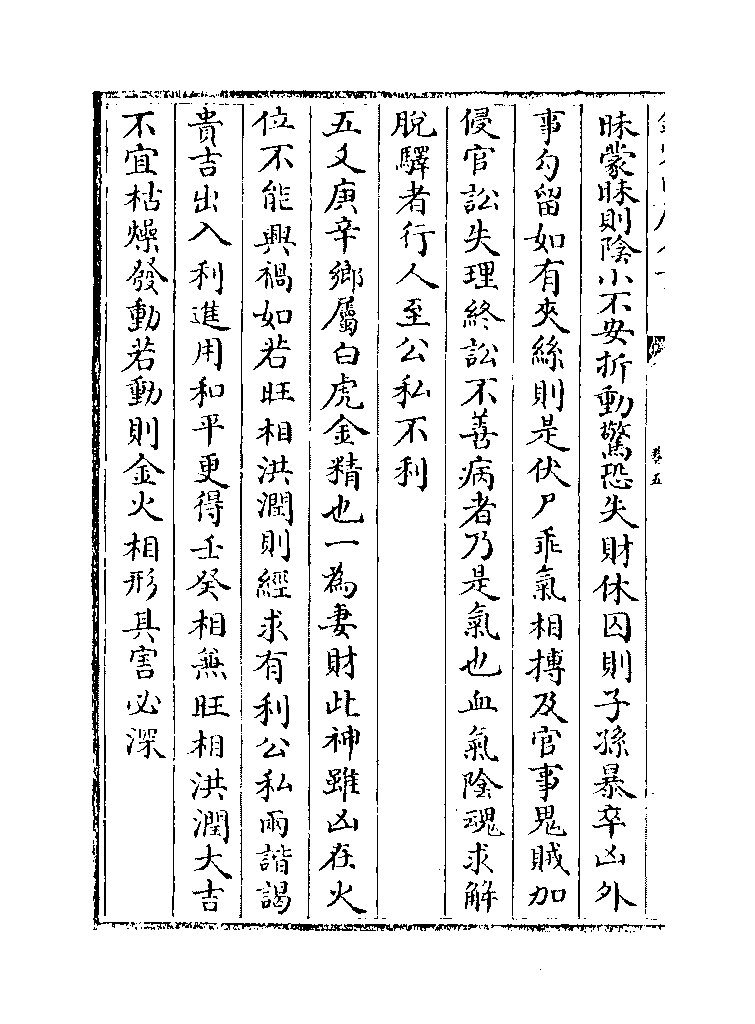 卷五
昧蒙昧則陰小不安折動驚恐失財休囚則子孫暴卒凶外
事勾留如有夾絲則是伏尸乖氣相搏及官事鬼賊加
侵官訟失理終訟不善病者乃是氣也血氣陰魂求解
脫驛者行人至公私不利
五爻庚辛鄉屬白虎金精也一為妻財此神雖凶在火
位不能興禍如若旺相洪潤則經求有利公私兩諧謁
貴吉出入利進用和平更得壬癸相無旺相洪潤大吉
不宜枯燥發動若動則金火相形其害必深